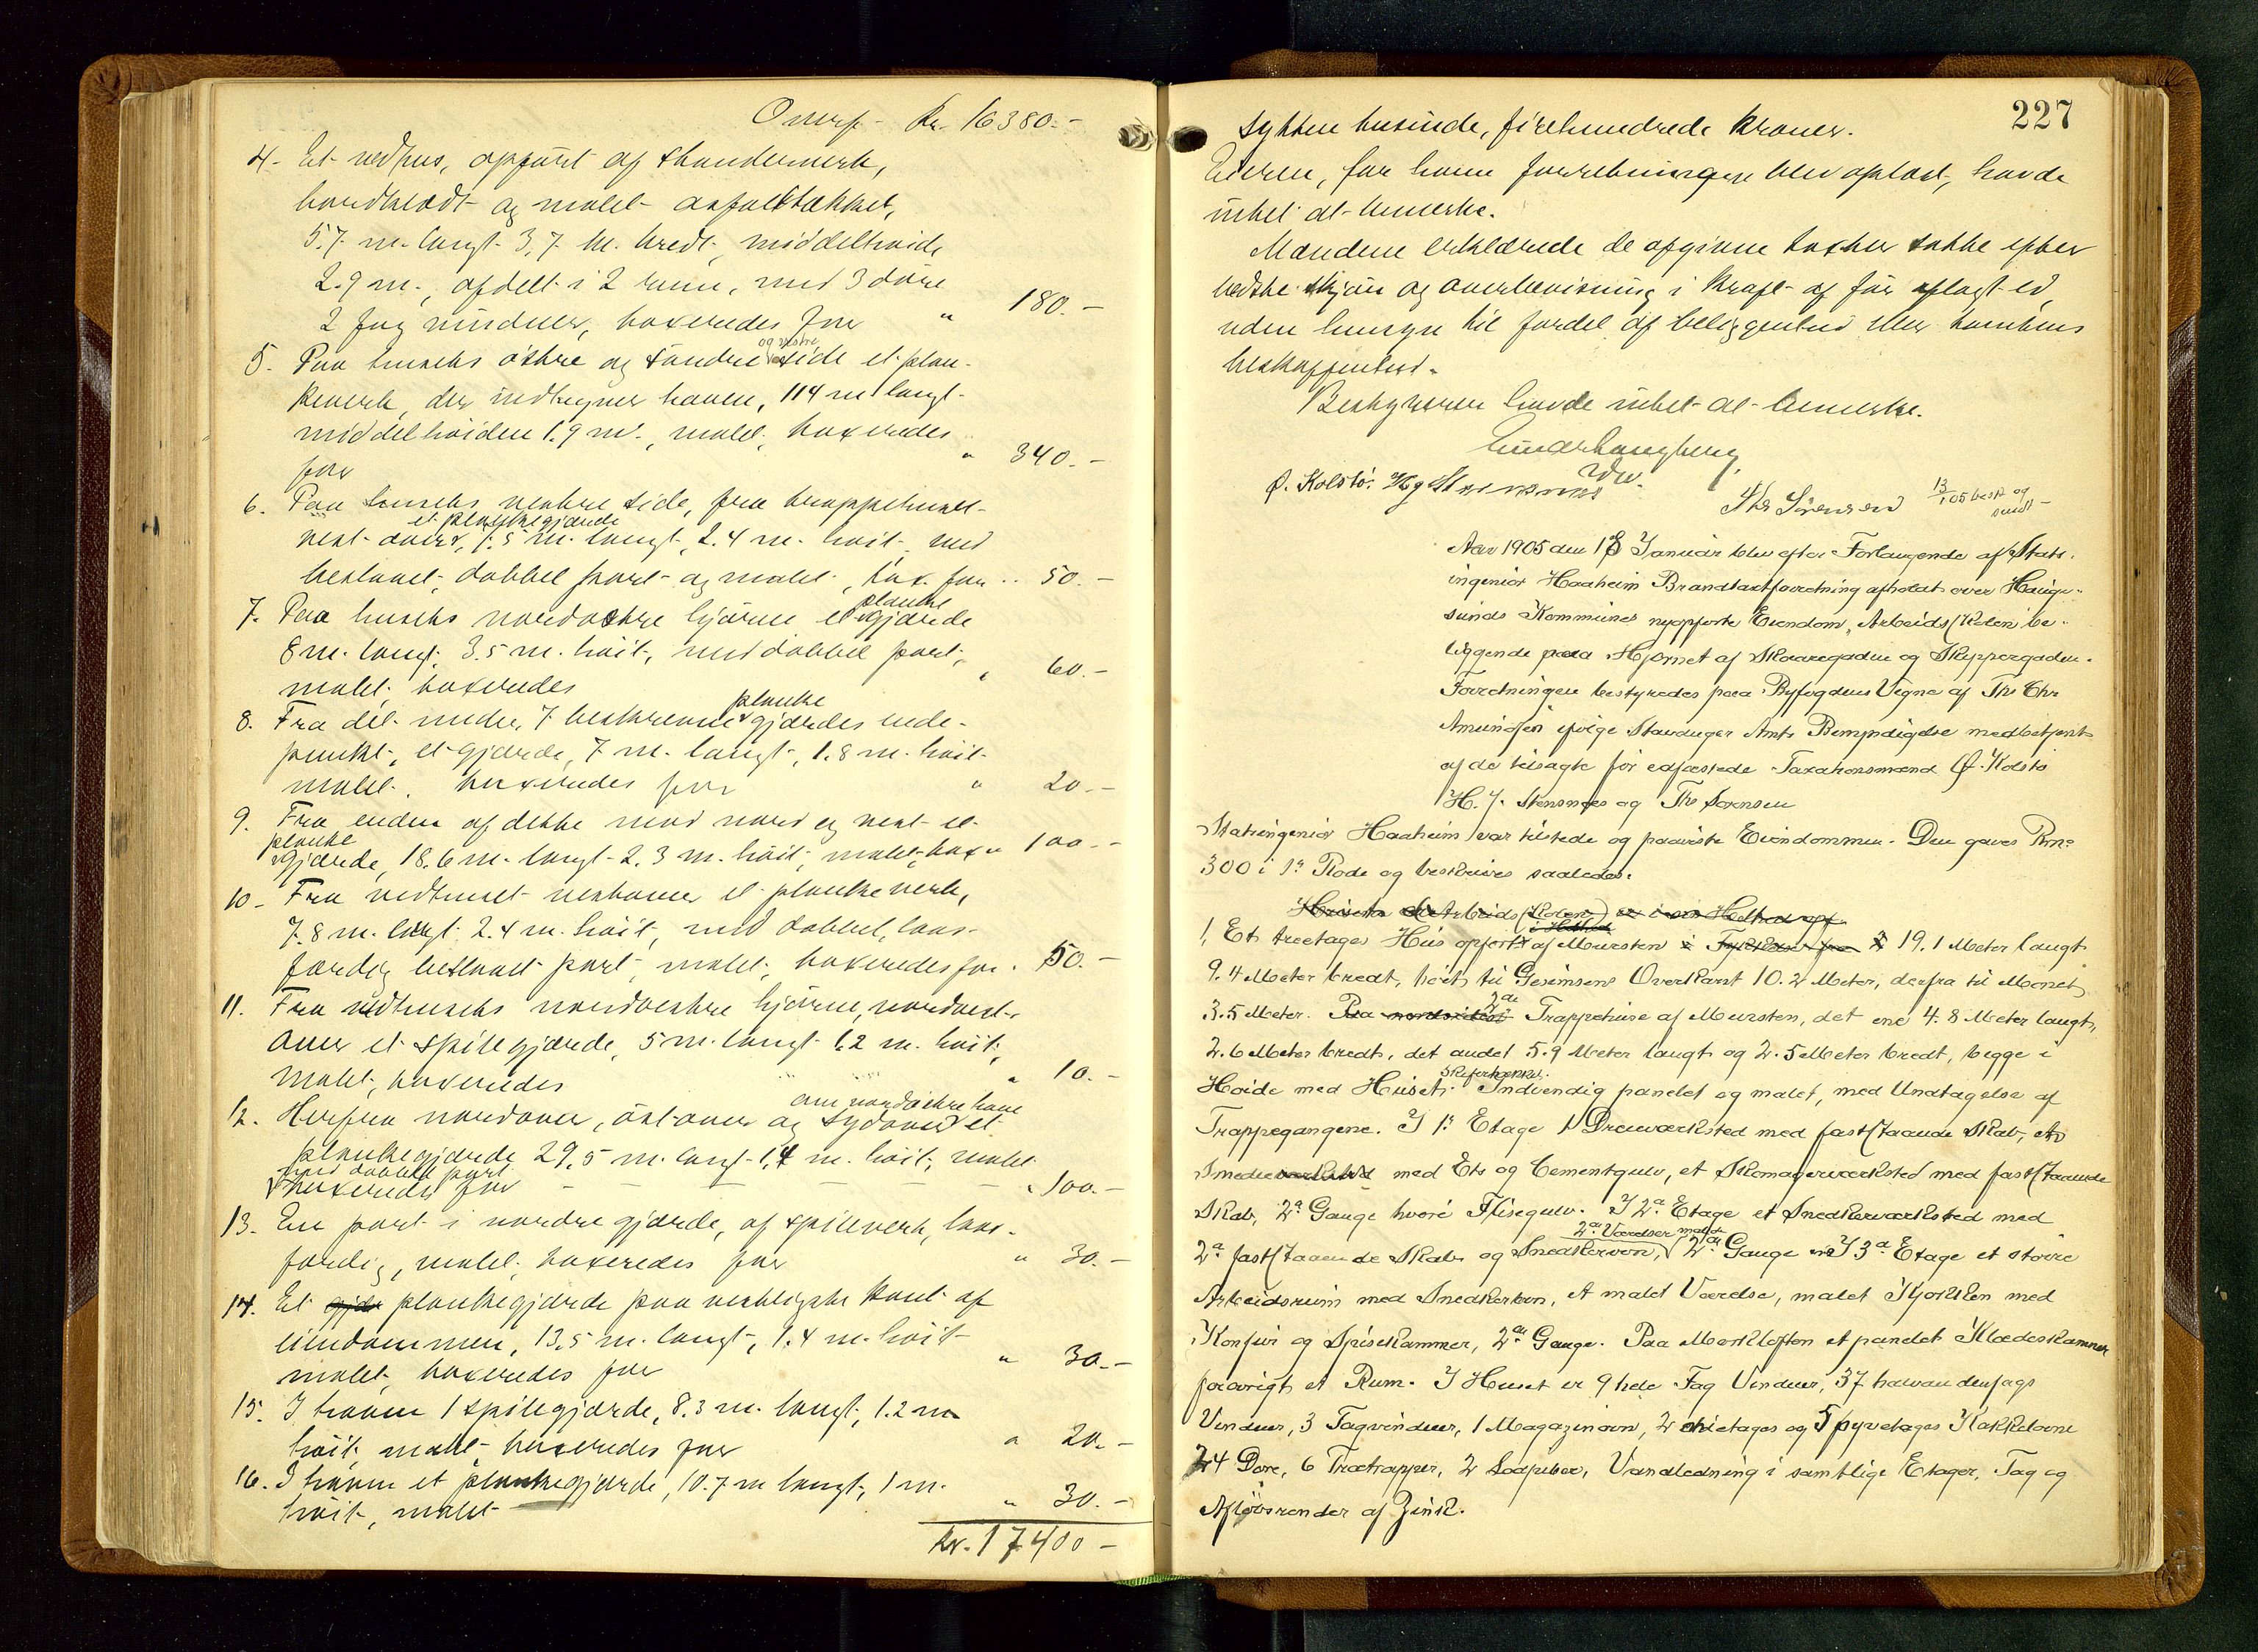 Overf - Kr. 16380.-
4. Et vedhus, opført af standerverk,
bordklædt og malet asfalttækket,
5.7 m. langt 3,7 m. bredt, middelhøide
2.9 m., afdelt i 2 rum, med 3 døre
2 fag vinduer, taxeredes for " 180.-
5. Paa husets østre og søndre og vestre side et plan-
keverk, der indhegner haven, 114 m langt
middelhøiden 1.9 m., malet, taxeredes
for " 340.-
6. Paa husets vestre side, fra trappehuset
vest-over, et plankegjærde 1.5 m. langt, 2.4 m. høit med
beslaaet dobbel port og malet, tax. for .. 50.-
7. Paa husets nordøstre hjørne et planke gjærde
8 m. langt, 3.5 m. høit, med dobbel port,
malet taxeredes " 60.-
8. Fra det under 7 beskrevne planke gjærdes ende-
punkt, et gjærde, 7 m. langt, 1.8 m. høit
malet. taxeredes for " 20.-
9. Fra enden af dette mod nord og vest et
planke gjærde, 18.6 m. langt 2.3 m. høit, malet, tax " 100.-
10. Fra vedhuset vestover et plankeverk,
7.8 m. langt 2.4 m. høit, med dobbel, laas-
færdig beslaaet port, malet, taxeredes for . 50.-
11. Fra vedhusets nordvestre hjørne, nordvest-
over et spilegjærde, 5 m. langt 1.2 m. høit,
malet, taxeredes " 10.-
12. Herfra nordover, østover og sydover om nordøstre have et
plankegjærde 29.5 m. langt 1,4 m. høit, malet
med dobbelt port taxeredes for - - - - " 100.-
13. En port i nordre gjærde, af spileverk, laas-
færdig, malet, taxeredes for " 30.-
14. Et gjær plankegjærde paa vestligste kant af
eiendommen, 13.5 m. langt, 1.4 m. høit
malet, taxeredes for " 30.-
15. I haven 1 spilegjærde, 8.3 m. langt, 1.2 m
høit, malet, taxeredes for " 20.-
16. I haven et plankegjærde, 10.7 m langt, 1 m.
høit, malet " 30.-
Kr. 17400-
227
sytten tusinde, firehundrede kroner.
Eieren, for hvem forretningen blev oplæst, havde
intet at bemerke.
Mændene erklærede de afgivne taxter satte efter
bedste skjøn og overbevisning i kraft af før aflagt ed,
uden hensyn til fordel af beliggenhed eller tomtens
beskaffenhed.
Bestyreren havde intet at bemerke.
Ø. Kolstø. H J Stensnæs
Ths Sørensen 13/1 05 besk og
Aar 1905 den 18 Januar blev efter Forlangende af Stads-
ingeniør Haaheim Brandtaxtforretning afholdt over Hauge-
sunds Kommunes nyopførte Eiendom „Arbeidsskolen" be-
liggende paa Hjørnet af Skaaregaden og Skippergaden.
Forretningen bestyredes paa Byfogdens Vegne af Ths Chr
Amundsen ifølge Stavanger Amts Bemyndigelse medbetjent
af de tilsagte før edfæstede Taxationsmænd Ø. Kolstø
H. J. Stensnæs og Ths Sørensen
Stadsingeniør Haaheim var tilstede og paaviste Eiendommen. Den gaves Brno
300 i 1ste Rode og beskrives saaledes:
Huset Arbeidsskolen er i sin Helhed opf
1, Et treetages Hus opført i Helhed af Mursten 19.1 Meter langt
9.4 Meter bredt, høit til Gesimsens Overkant 10.2 Meter, derfra til Mønet
3.5 Meter. Paa nordsiden 2de Trappehuse af Mursten, det ene 4.8 Meter langt,
2.6 Meter bredt, det andet 5.9 Meter langt og 2.5 Meter bredt, begge i
Høide med Huset. Skifertækket. Indvendig panelet og malet, med Undtagelse af
Trappegangene. I 1ste Etage 1 Dreieværksted med faststaaende Skab, et
Smedieværksted med Ets og Cementgulv, et Skomagerværksted med faststaaende
Skab, 2de Gange hvori Flisegulv. I 2den Etage et Snedkerværksted med
2de faststaaende Skabe og Snedkerovn, 2de Værelser malede 2de Gange I 3die Etage et større
Arbeidsrum med Snedkerovn, et malet Værelse, malet Kjøkken med
Komfur og Spisekammer, 2de Gange. Paa Mørkloften et panelet Klædeskammer
forøvrigt et Rum. I Huset er 9 hele Fag Vinduer, 37 halvandenfags
Vinduer, 3 Tagvinduer, 1 Magazinovn, 2 toetages og 5 fyretages Kakkelovne
24 Døre, 6 Trætrapper, 2 Sodpiber, Vandledning i samtlige Etager, Tag og
Afløbsrender af Zink.